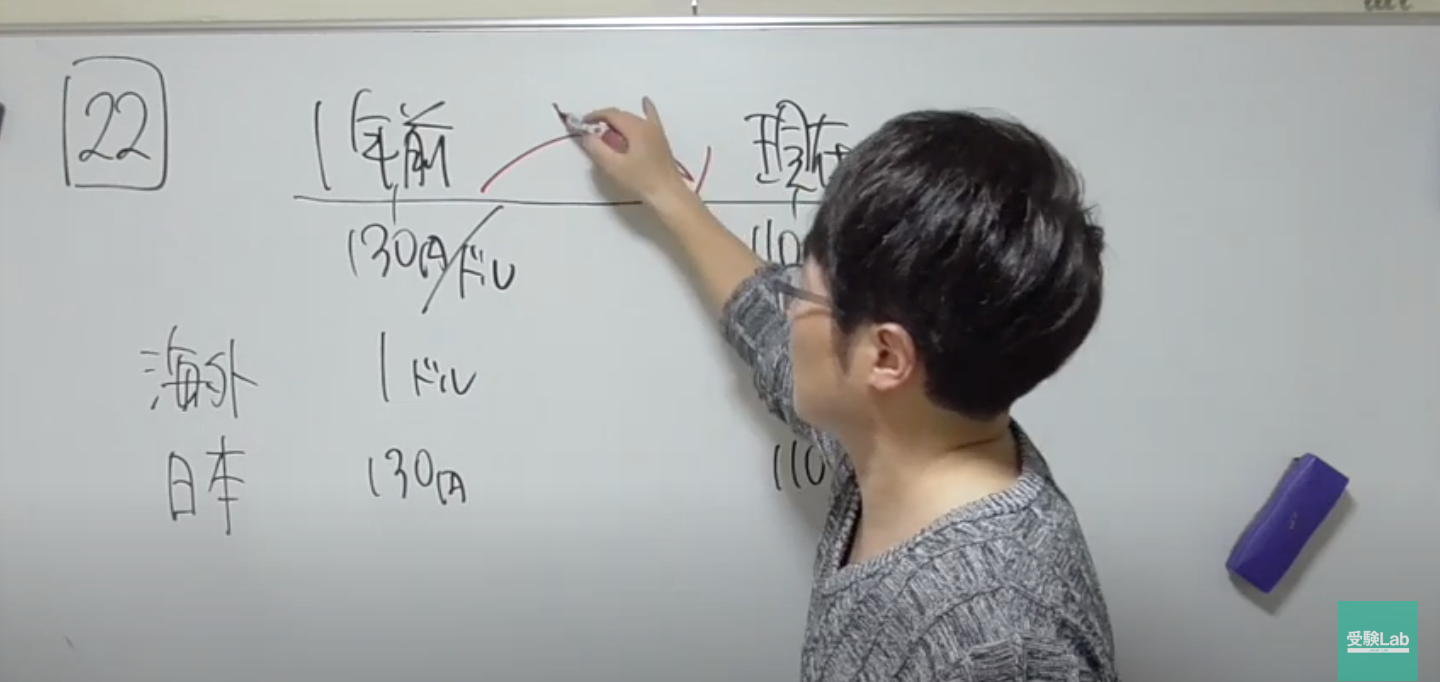 22
1年前 現在
130円/ドル 110
海外 1ドル
日本 130円 110
受験Lab